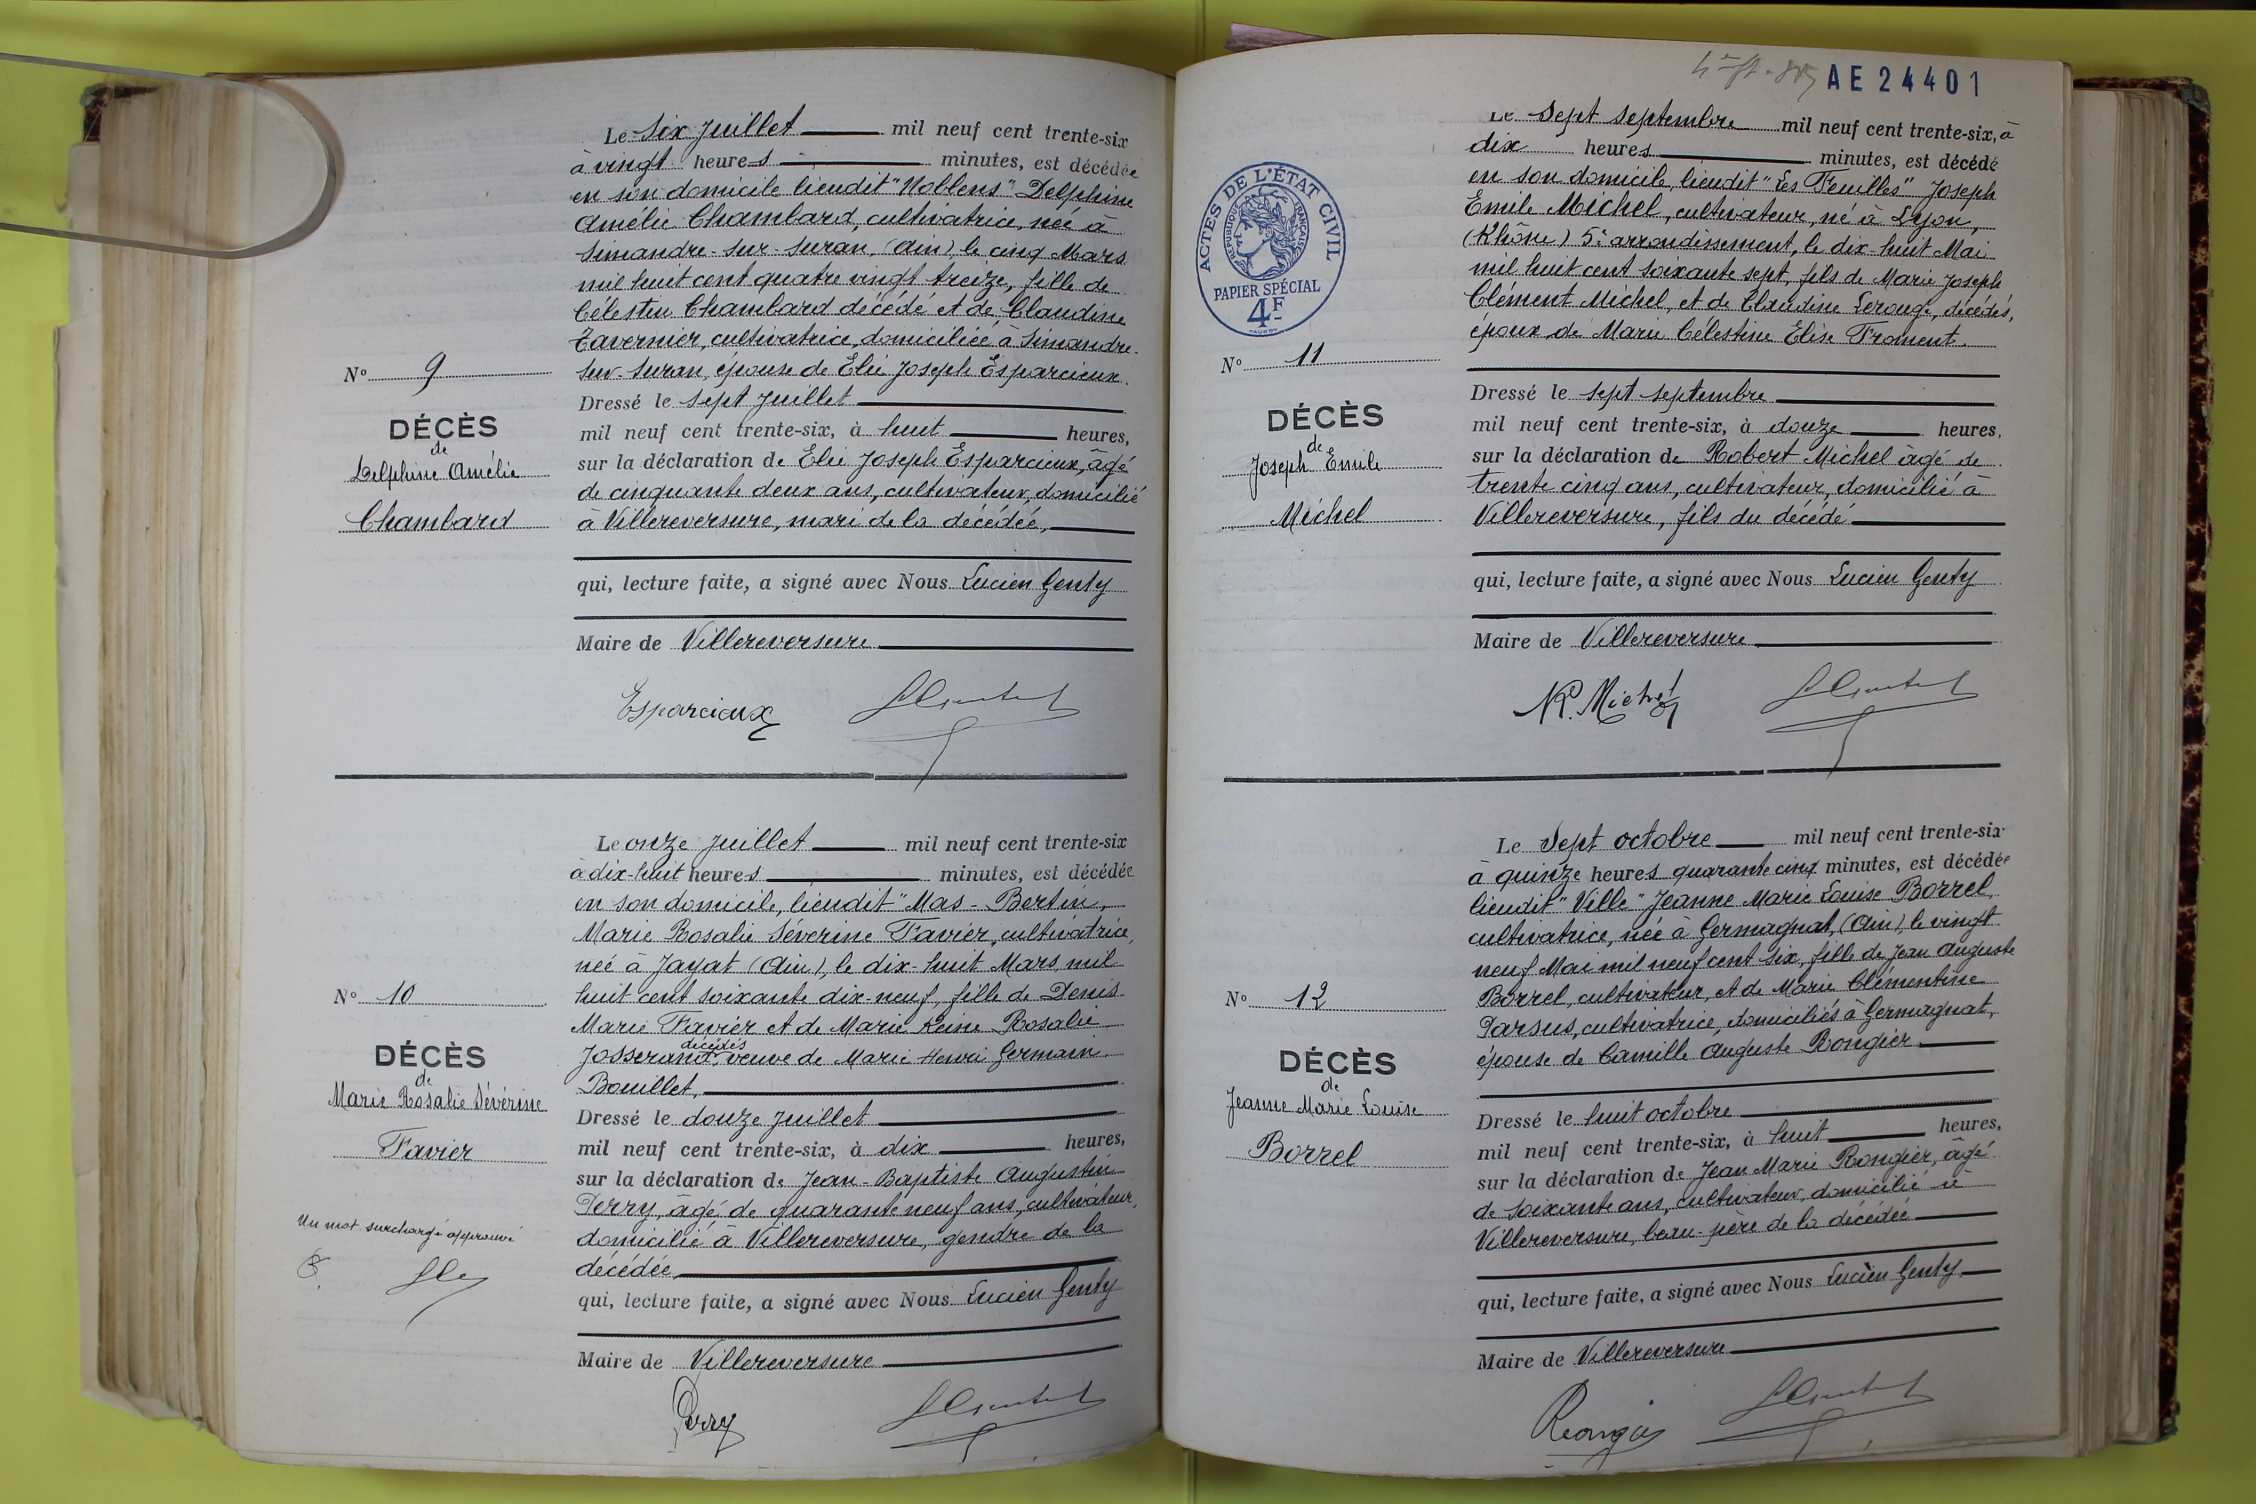 Le six Juillet mil neuf cent trente-six
à vingt heures minutes, est décédée
en son domicile lieudit "Noblens" Delphine
Amélie Chambard, cultivatrice, née à
Simandre-sur-Suran, (Ain), le cinq Mars
mil huit cent quatre vingt treize, fille de
Célestin Chambard décédé et de Claudine
Tavernier, cultivatrice, domiciliée à Simandre-
sur-Suran, épouse de Elie Joseph Esparcieux.
Nº 9
DÉCÈS
de
Delphine Amélie
Chambard
Dressé le sept Juillet
mil neuf cent trente-six, à huit heures,
sur la déclaration de Elie Joseph Esparcieux, âgé
de cinquante deux ans, cultivateur, domicilié
à Villereversure, mari de la décédée,
qui, lecture faite, a signé avec Nous Lucien Genty
Maire de Villereversure
Esparcieux
Le onze Juillet mil neuf cent trente-six
à dix-huit heures minutes, est décédée
en son domicile, lieudit "Mas-Bertin,
Marie Rosalie Séverine Favier, cultivatrice,
née à Jayat (Ain), le dix-huit Mars mil
huit cent soixante dix-neuf, fille de Denis
Marie Favier et de Marie Reine Rosalie
décédés
Josserand, veuve de Marie Henri Germain
Bouillet,
Nº 10
DÉCÈS
de
Marie Rosalie Séverine
Favier
Un mot surchargé approuvé
Dressé le douze Juillet
mil neuf cent trente-six, à dix heures,
sur la déclaration de Jean-Baptiste Augustin
Perry, âgé de quarante neuf ans, cultivateur,
domicilié à Villereversure, gendre de la
décédée
qui, lecture faite, a signé avec Nous Lucien Genty
Maire de Villereversure
Perry
AE 24401
ACTES DE L'ÉTAT CIVIL
RÉPUBLIQUE FRANÇAISE
PAPIER SPÉCIAL
4F
Le Sept Septembre mil neuf cent trente-six, à
dix heures minutes, est décédé
en son domicile, lieudit "Les Feuilles" Joseph
Emile Michel, cultivateur, né à Lyon,
(Rhône) 5e arrondissement, le dix-huit Mai
mil huit cent soixante sept, fils de Marie Joseph
Clément Michel, et de Claudine Lerouge, décédés,
époux de Marie Célestine Elise Froment.
Nº 11
DÉCÈS
de
Joseph Emile
Michel
Dressé le sept septembre
mil neuf cent trente-six, à douze heures,
sur la déclaration de Robert Michel âgé de
trente cinq ans, cultivateur, domicilié à
Villereversure, fils du décédé
qui, lecture faite, a signé avec Nous Lucien Genty
Maire de Villereversure
R. Michel
Le Sept octobre mil neuf cent trente-six
à quinze heures quarante cinq minutes, est décédée
lieudit "Ville" Jeanne Marie Louise Borrel
cultivatrice, née à Germagnat, (Ain), le vingt
neuf Mai mil neuf cent six, fille de Jean Auguste
Borrel, cultivateur, et de Marie Clémentine
Parsus, cultivatrice, domiciliés à Germagnat,
épouse de Camille Auguste Rongier
Nº 12
DÉCÈS
de
Jeanne Marie Louise
Borrel
Dressé le huit octobre
mil neuf cent trente-six, à huit heures,
sur la déclaration de Jean Marie Rongier, âgé
de soixante ans, cultivateur, domicilié à
Villereversure, beau-père de la décédée
qui, lecture faite, a signé avec Nous Lucien Genty
Maire de Villereversure
Rongier